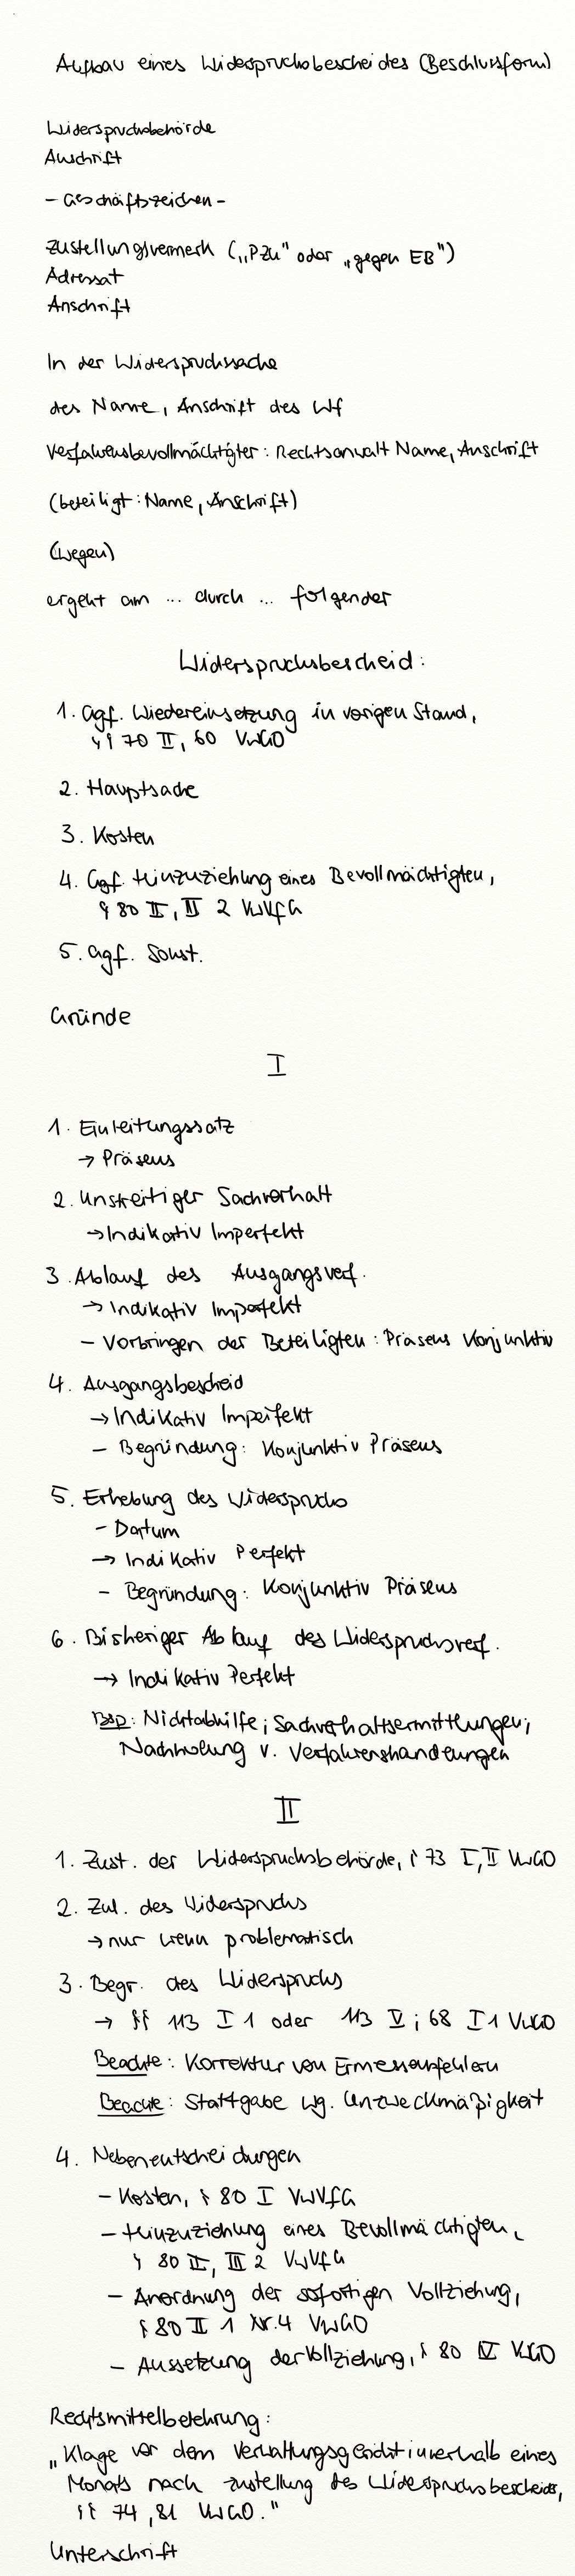 Aufbau eines Widerspruchsbescheides (Beschlussform)
Widerspruchsbehörde
Anschrift
- Geschäftszeichen -
Zustellungsvermerk („PZU" oder „gegen EB")
Adressat
Anschrift
In der Widerspruchssache
des Name, Anschrift des Wf
Verfahrensbevollmächtigter: Rechtsanwalt Name, Anschrift
(beteiligt: Name, Anschrift)
(wegen)
ergeht am ... durch ... folgender
Widerspruchsbescheid:
1. Ggf. Wiedereinsetzung in vorigen Stand,
§§ 70 II, 60 VwGO
2. Hauptsache
3. Kosten
4. Ggf. Hinzuziehung eines Bevollmächtigten,
§ 80 II, III 2 VwVfG
5. Ggf. Sonst.
Gründe
I
1. Einleitungssatz
→ Präsens
2. Unstreitiger Sachverhalt
→ Indikativ Imperfekt
3. Ablauf des Ausgangsverf.
→ Indikativ Imperfekt
- Vorbringen der Beteiligten: Präsens Konjunktiv
4. Ausgangsbescheid
→ Indikativ Imperfekt
- Begründung: Konjunktiv Präsens
5. Erhebung des Widerspruchs
- Datum
→ Indikativ Perfekt
- Begründung: Konjunktiv Präsens
6. Bisheriger Ablauf des Widerspruchsverf.
→ Indikativ Perfekt
Bsp: Nichtabhilfe; Sachverhaltsermittlungen;
Nachholung v. Verfahrenshandlungen
II
1. Zust. der Widerspruchsbehörde, § 73 I, II VwGO
2. Zul. des Widerspruchs
→ nur wenn problematisch
3. Begr. des Widerspruchs
→ §§ 113 I 1 oder 113 V; 68 I 1 VwGO
Beachte: Korrektur von Ermessensfehlern
Beachte: Stattgabe wg. Unzweckmäßigkeit
4. Nebenentscheidungen
- Kosten, § 80 I VwVfG
- Hinzuziehung eines Bevollmächtigten,
§ 80 II, III 2 VwVfG
- Anordnung der sofortigen Vollziehung,
§ 80 II 1 Nr. 4 VwGO
- Aussetzung der Vollziehung, § 80 IV VwGO
Rechtsmittelbelehrung:
„Klage vor dem Verwaltungsgericht innerhalb eines
Monats nach Zustellung des Widerspruchsbescheids,
§§ 74, 81 VwGO."
Unterschrift